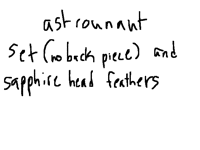 astrounant
set (no back piece) and
sapphire head feathers